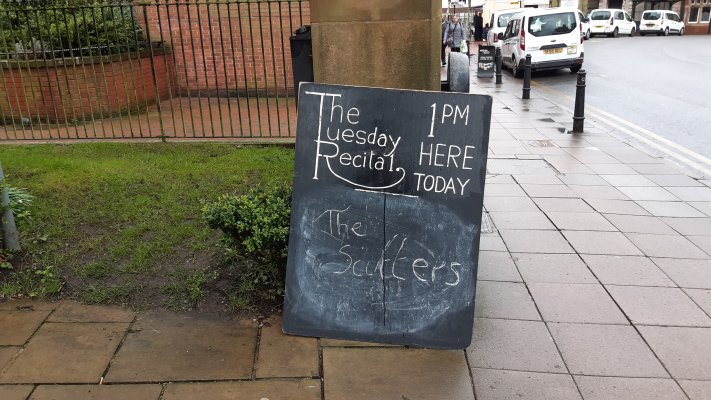 The
Tuesday
Recital,
1PM
HERE
TODAY
The
Scutters